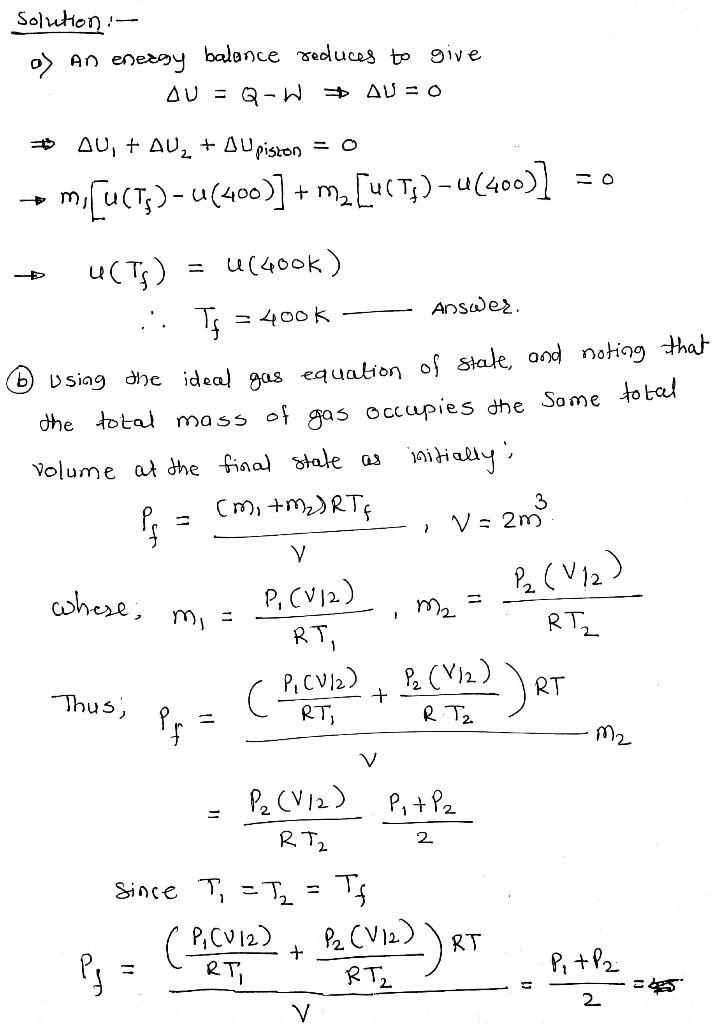 Solution :—
a) An energy balance reduces to give
ΔU = Q - W ⇒ ΔU = 0
⇒ ΔU₁ + ΔU₂ + ΔU piston = 0
→ m₁[u(T_f) - u(400)] + m₂[u(T_f) - u(400)] = 0
→ u(T_f) = u(400K)
∴ T_f = 400K —— Answer.
(b) Using the ideal gas equation of state, and noting that
the total mass of gas occupies the same total
volume at the final state as initially;
P_f = (m₁ + m₂)RT_f / V , V = 2m³
where; m₁ = P₁(V/2) / RT₁ , m₂ = P₂(V/2) / RT₂
Thus; P_f = (P₁(V/2) / RT₁ + P₂(V/2) / R.T₂) RT / V m₂
= P₂(V/2) / RT₂ P₁ + P₂ / 2
Since T₁ = T₂ = T_f
P_f = (P₁(V/2) / RT₁ + P₂(V/2) / RT₂) RT / V = P₁ + P₂ / 2 =